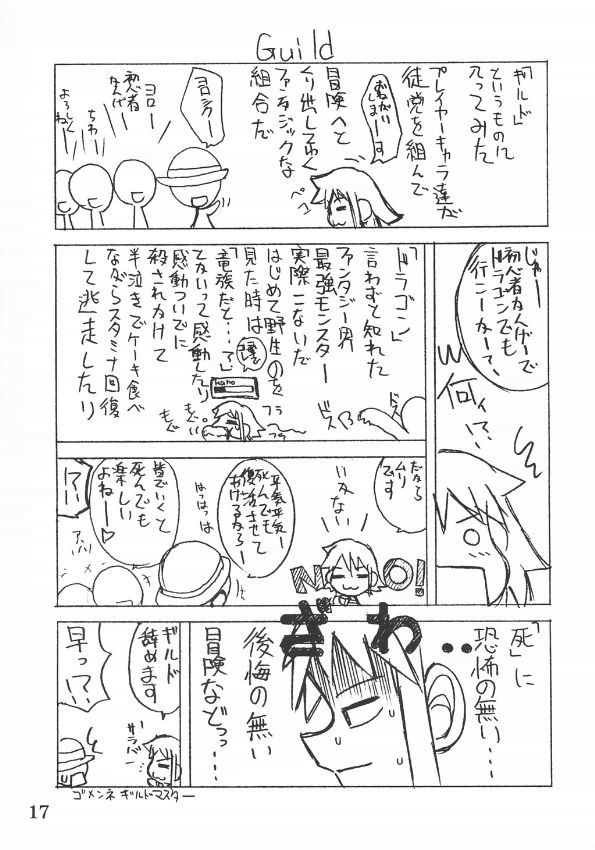 Guild
「ギルド」
というものに
入ってみた
プレイヤーキャラ達が
徒党を組んで
冒険へと
くり出してゆく
ファンタジックな
組合だ
おねがい
しまーす
ペコ
ヨロシクー
ヨロー
初心者
なんだー
ちわ
よろしくね
じゃー
初心者なんで
ドラゴンでも
行こーかー?
何ィ!?
「ドラゴン」
言わずと知れた
ファンタジー界
最強モンスター
実際こないだ
はじめて野生のを
見た時は
「竜族だと…」
てないって感動したり
感動ついでに
殺されかけて
半泣きでケーキ食べ
ながらスタミナ回復
して逃走したり
フラ
フラ
もぐ
もぐ
ドス
ドス
だから
ムリ
です
いらない
NO!
平気平気ー
死んでもて
復活させて
あげるからー
はっはっは
皆でいくと
死んでも
楽しい
よねー♡
アハハ
!?
「死」に
恐怖の無い…
ぎわ・・
後悔の無い
冒険などっ…
ギルド
辞めます
サラバ
早っ!?
ゴメンネ ギルドマスター
17